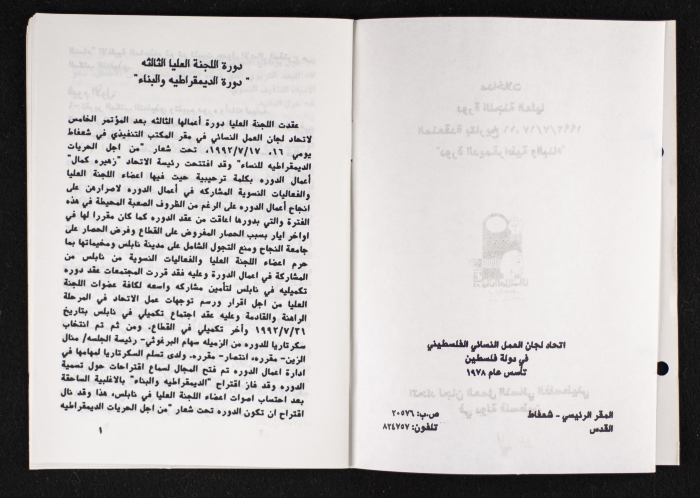 اتحاد لجان العمل النسائي الفلسطيني
في دولة فلسطين
تأسس عام ١٩٧٨
المقر الرئيسي - شعفاط
القدس
ص.ب: ٢٠٥٧٦
تلفون: ٨٢٤٧٥٧
دورة اللجنة العليا الثالثه
" دورة الديمقراطيه والبناء"
عقدت اللجنة العليا دورة أعمالها الثالثه بعد المؤتمر الخامس
لاتحاد لجان العمل النسائي في مقر المكتب التنفيذي في شعفاط
يومي ١٦، ١٩٩٢/٧/١٧، تحت شعار "من اجل الحريات
الديمقراطيه للنساء" وقد افتتحت رئيسة الاتحاد "زهيره كمال"
أعمال الدوره بكلمة ترحيبية حيت فيها اعضاء اللجنة العليا
والفعاليات النسوية المشاركه في أعمال الدوره لاصرارهن على
انجاح أعمال الدوره على الرغم من الظروف الصعبة المحيطة في هذه
الفترة والتي بدورها اعاقت من عقد الدوره كما كان مقررا لها في
اواخر ايار بسبب الحصار المفروض على القطاع وفرض الحصار على
جامعة النجاح ومنع التجول الشامل على مدينة نابلس ومخيماتها بما
حرم اعضاء اللجنة العليا والفعاليات النسوية من نابلس من
المشاركة في اعمال الدورة وعليه فقد قررت المجتمعات عقد دوره
تكميليه في نابلس لتأمين مشاركه واسعه لكافة عضوات اللجنة
العليا من اجل اقرار ورسم توجهات عمل الاتحاد في المرحلة
الراهنة والقادمة وعليه عقد اجتماع تكميلي في نابلس بتاريخ
١٩٩٢/٧/٣١ وآخر تكميلي في القطاع. ومن ثم تم انتخاب
سكرتاريا للدوره من الزميله سهام البرغوثي- رئيسة الجلسه/ منال
الزين- مقرره، انتصار- مقرره. ولدى تسلم السكرتاريا لمهامها في
ادارة اعمال الدوره تم فتح المجال لسماع اقتراحات حول تسمية
الدوره وقد فاز اقتراح "الديمقراطيه والبناء" بالاغلبية الساحقة
بعد احتساب اصوات اعضاء اللجنة العليا في نابلس، هذا وقد نال
اقتراح ان تكون الدوره تحت شعار "من اجل الحريات الديمقراطيه
١